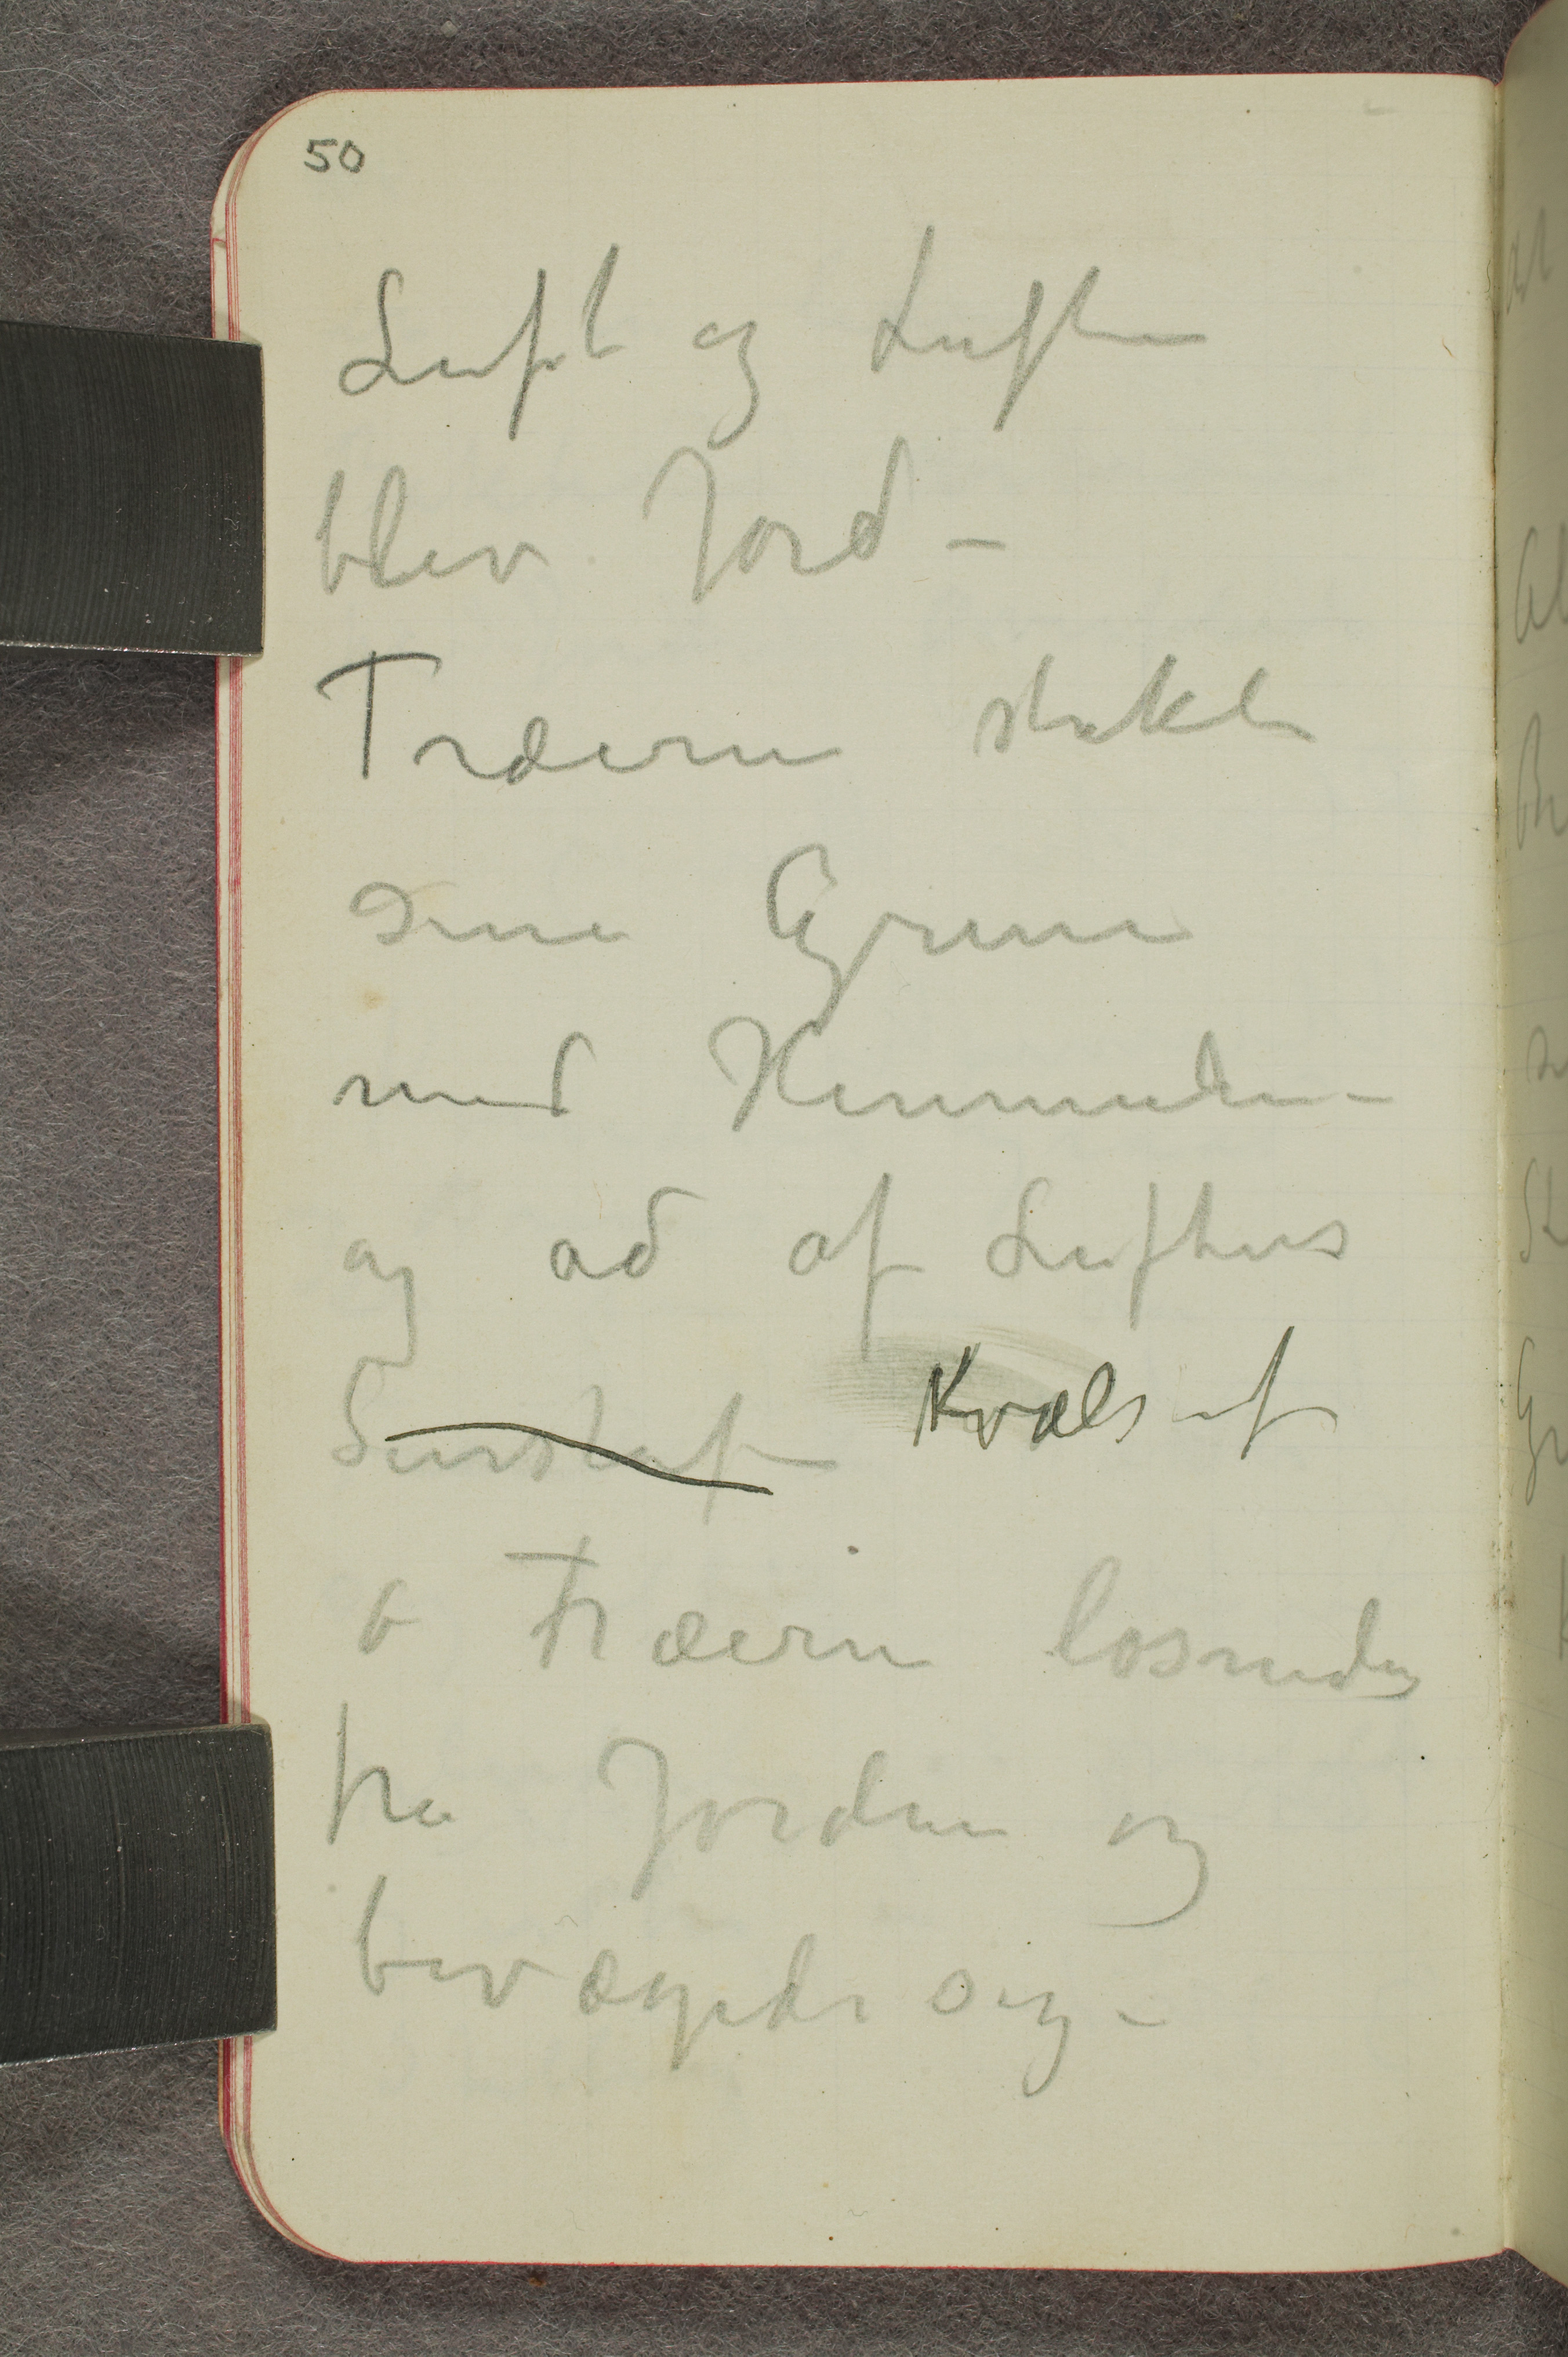 50
Luft og Luften
blev Jord –
Træerne strakte
sine Grene
mod Himmelen –
og åd af Luftens
Surstof Kvælstof
o Træerne løsnedes
fra Jorden og
bevægede sig –